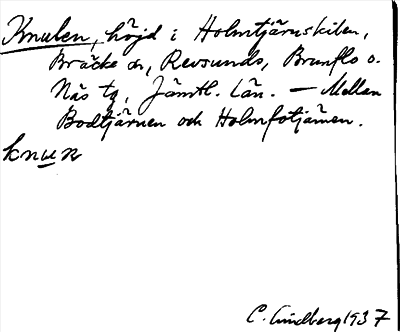 Knulen, höjd i Holmtjärnskilen,
Bräcke sn, Revsunds, Brunflo o.
Näs tg, Jämtl. Län. — Mellan
Bodtjärnen och Holmfotjärnen.
knun
C. Lindberg 1937